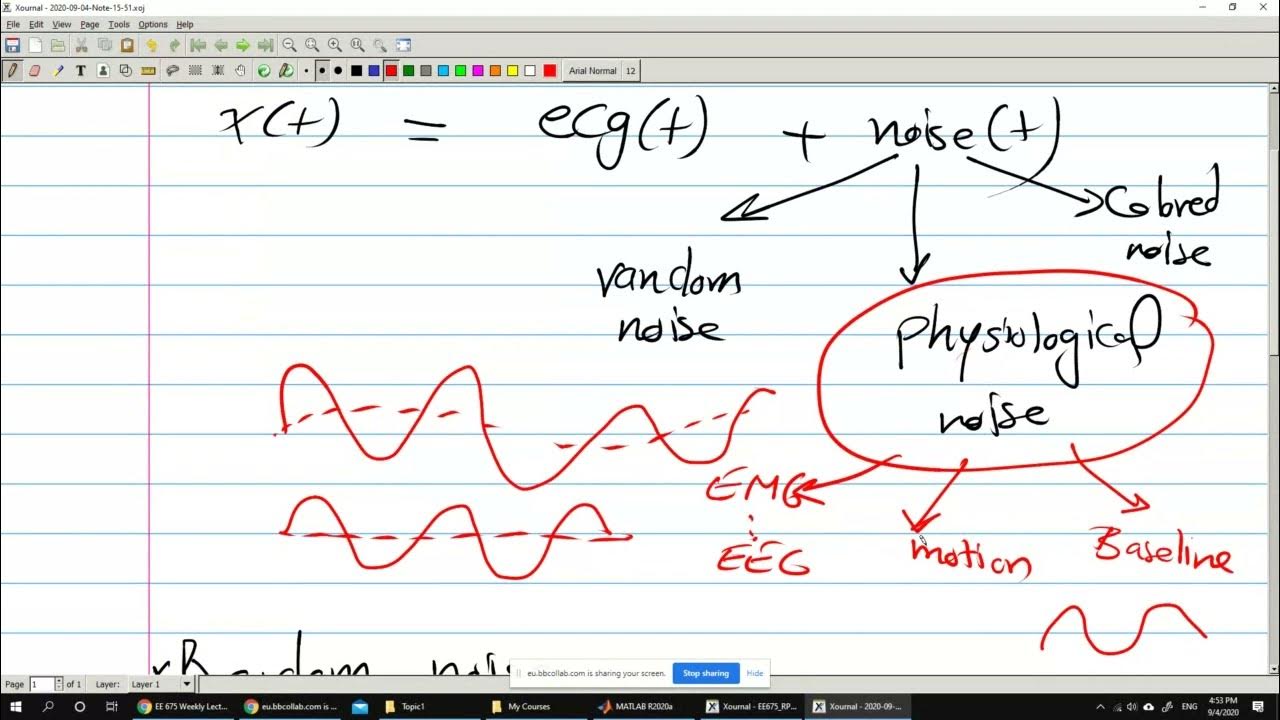 Xournal - 2020-09-04-Note-15-51.xoj
File Edit View Page Tools Options Help
Arial Normal 12
x(t) = ecg(t) + noise(t)
random
noise
Colored
noise
physiological
noise
EMG
EEG
motion
Baseline
Random noise
eu.bbcollab.com is sharing your screen. Stop sharing Hide
Page 1 of 1 Layer: Layer 1
EE 675 Weekly Lect...
eu.bbcollab.com is ...
Topic1
My Courses
MATLAB R2020a
Xournal - EE675_RP...
Xournal - 2020-09-...
ENG
4:53 PM
9/4/2020